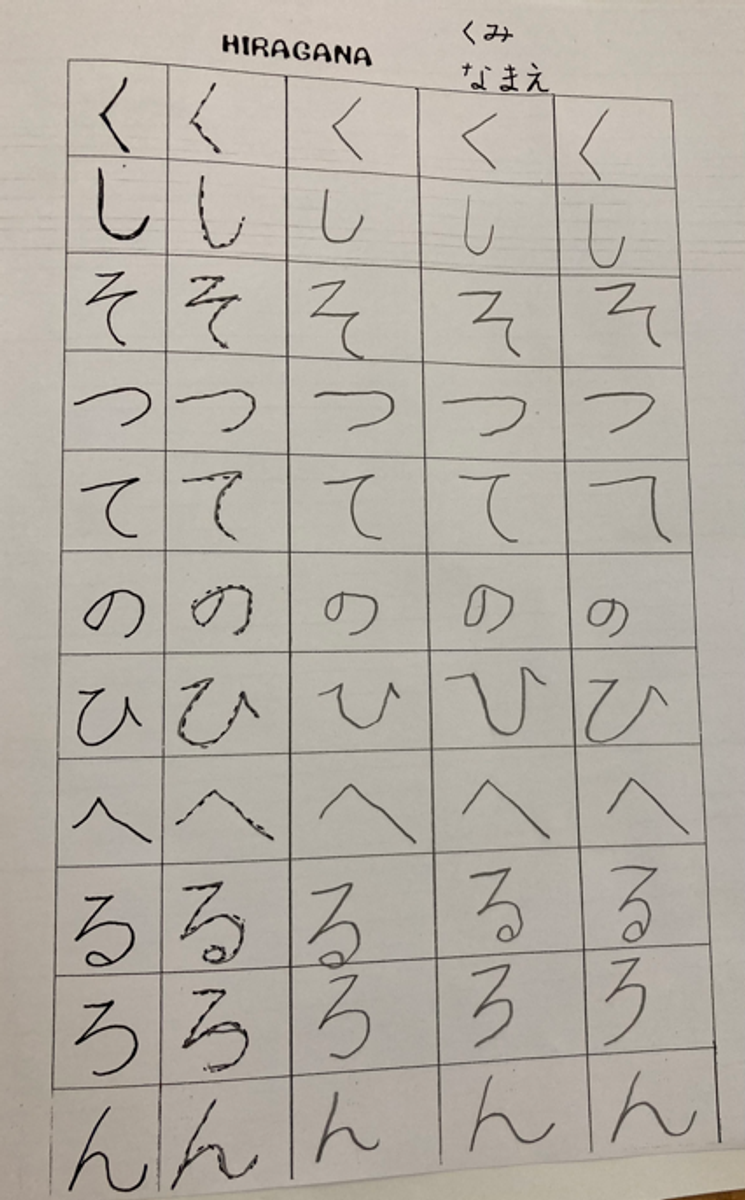 HIRAGANA
くみ
なまえ
く く く く く
し し し し し
そ そ そ そ そ
つ つ つ つ つ
て て て て て
の の の の の
ひ ひ ひ ひ ひ
へ へ へ へ へ
る る る る る
ろ ろ ろ ろ ろ
ん ん ん ん ん